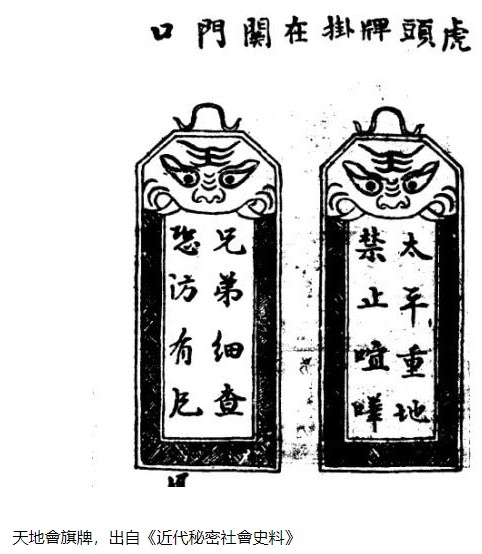 虎頭牌掛在關門口
太平重地
禁止喧嘩
兄弟細查
恐有
天地會旗牌，出自《近代秘密社會史料》